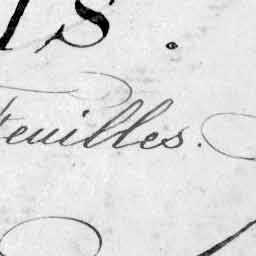 is.
Feuilles.